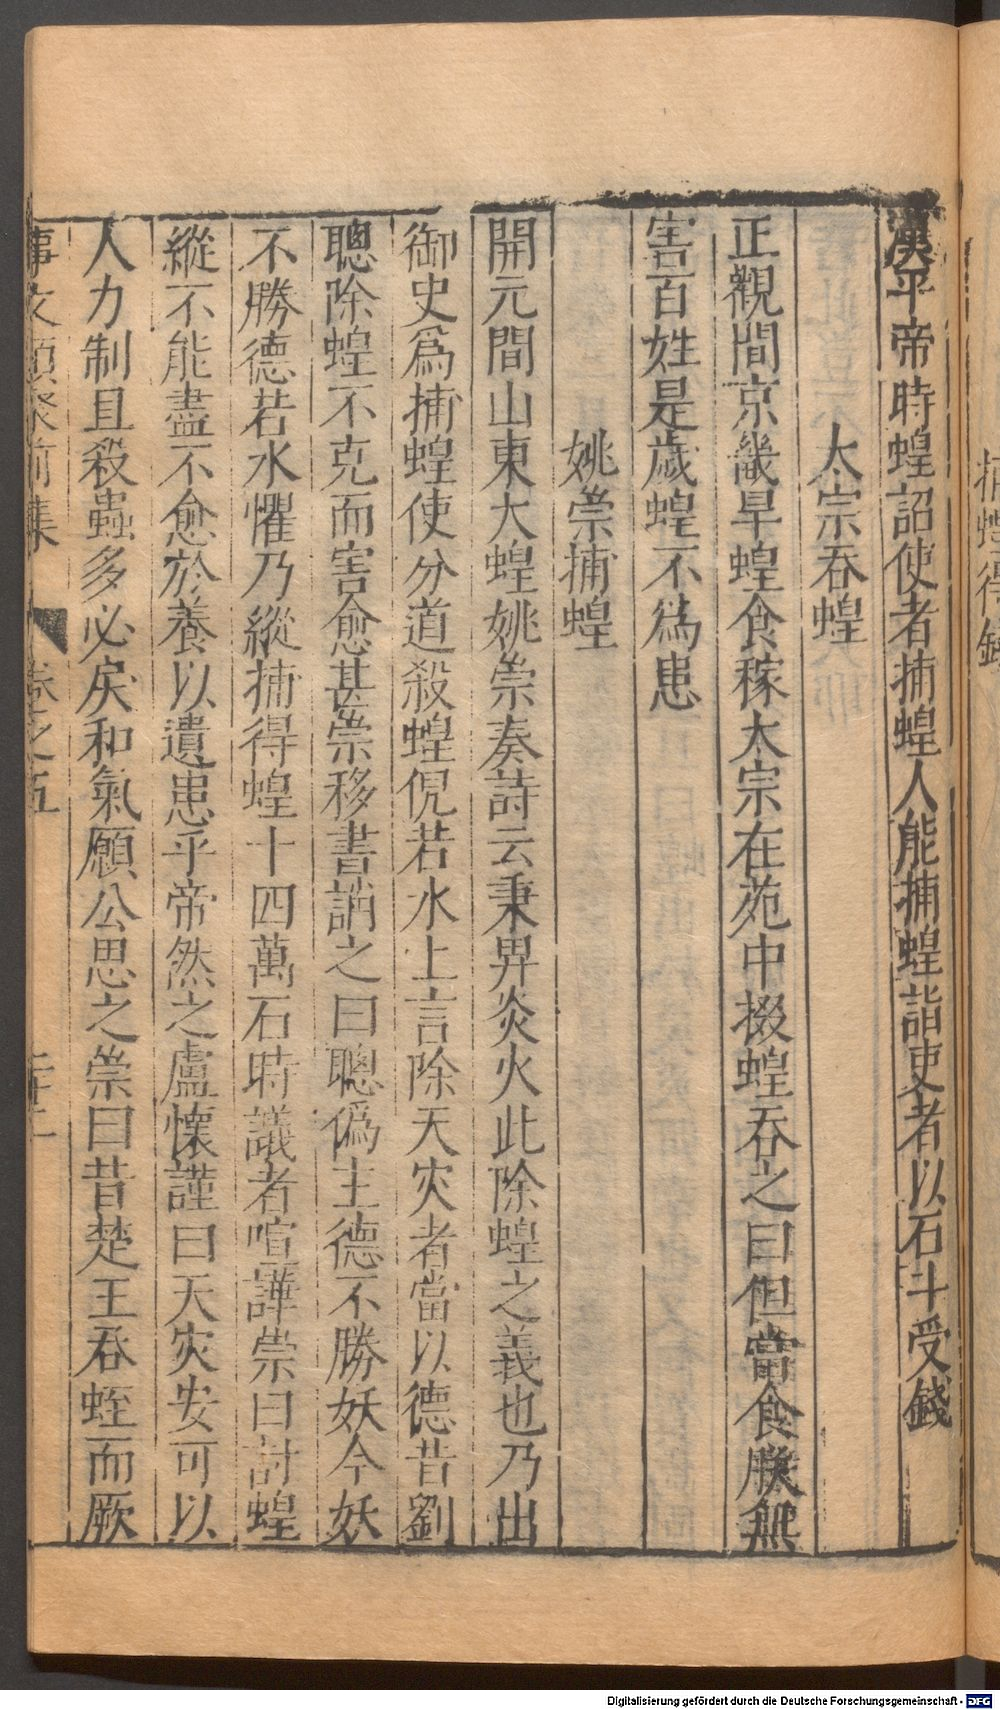 捕蝗得錢
漢平帝時蝗詔使者捕蝗人能捕蝗詣吏者以石斗受錢
太宗吞蝗
正觀間京畿旱蝗食稼太宗在苑中掇蝗吞之曰但當食朕無
害百姓是歲蝗不為患
姚崇捕蝗
開元間山東大蝗姚崇奏詩云秉畀炎火此除蝗之義也乃出
御史爲捕蝗使分道殺蝗倪若水上言除天灾者當以德昔劉
聰除蝗不克而害愈甚崇移書誚之曰聰僞主德不勝妖今妖
不勝德若水懼乃縱捕得蝗十四萬石時議者喧譁崇曰討蝗
縱不能盡不愈於養以遺患乎帝然之盧懷謹曰天灾安可以
人力制且殺蟲多必戾和氣願公思之崇曰昔楚王吞蛭而厥
事文類聚前集 卷之五
Digitalisierung gefördert durch die Deutsche Forschungsgemeinschaft - DFG